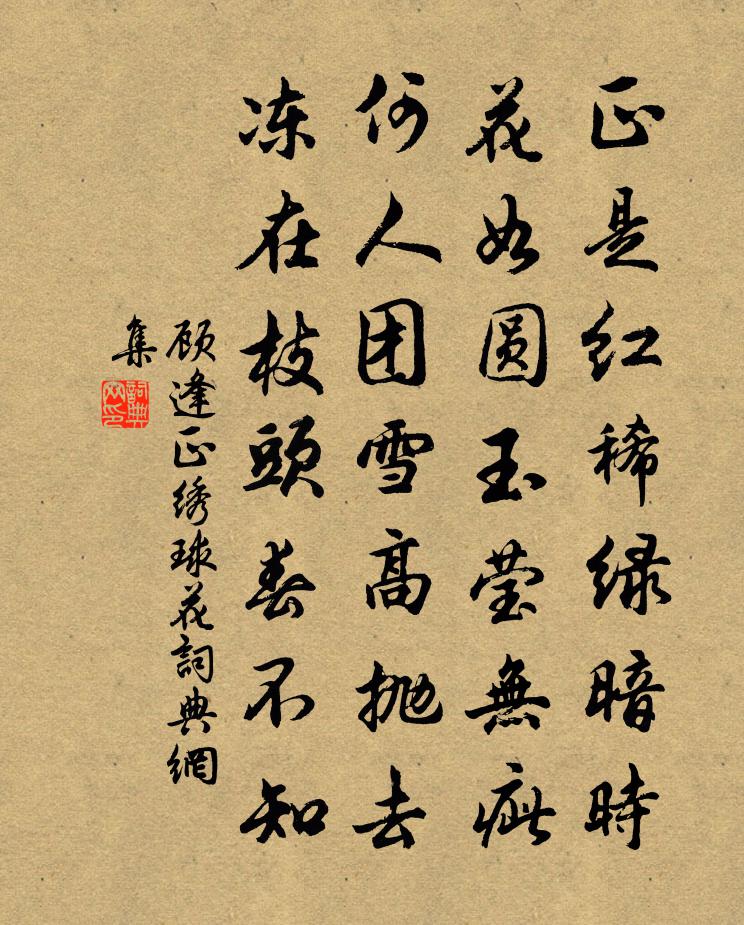 正是红稀绿暗時
花如圆玉莹無疵
何人团雪高抛去
冻在枝頭春不知
顾逢正绣球花詞典網
集
詞典网印